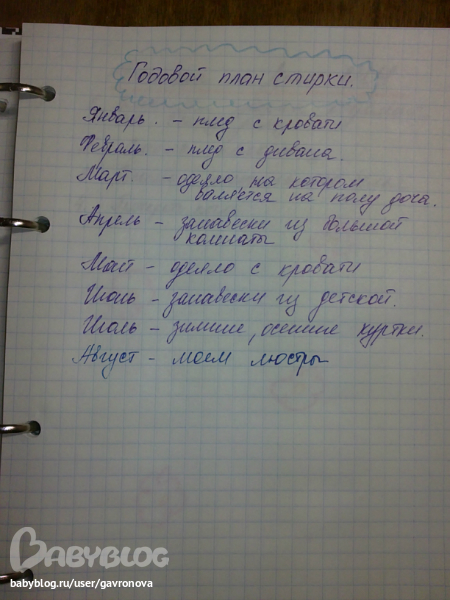 Годовой план стирки.
Январь. - плед с кровати
Февраль. - плед с дивана.
Март. - одеяло, на котором
валяется на полу доча.
Апрель - занавески из большой
комнаты
Май - одеяло с кровати
Июнь - занавески из детской.
Июль - зимние, осенние куртки.
Август - моем люстры
BABYBLOG
babyblog.ru/user/gavronova